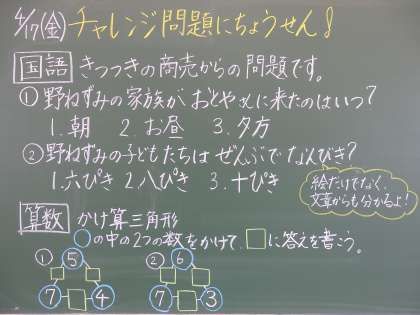 4/17(金)チャレンジ問題にちょうせん!
国語 きつつきの商売からの問題です。
①野ねずみの家族がおとやさんに来たのはいつ?
1.朝 2.お昼 3.夕方
②野ねずみの子どもたちはぜんぶでなんびき?
1.六ぴき 2.八ぴき 3.十ぴき
絵だけでなく、
文章からも分かるよ!
算数 かけ算三角形
○の中の2つの数をかけて、□に答えを書こう。
① 5 ② 6
7 4 7 3